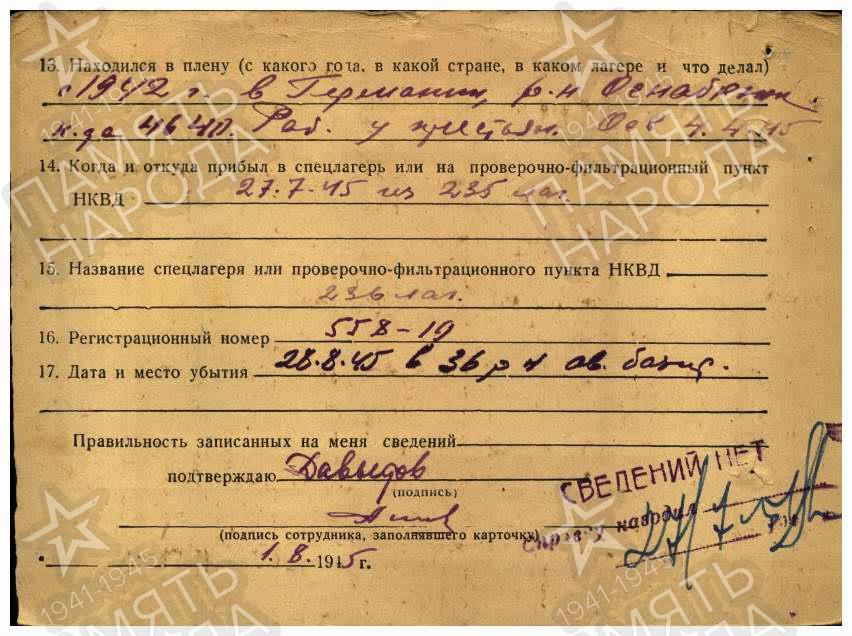 13. Находился в плену (с какого года, в какой стране, в каком лагере и что делал)
с 1942 г. в Германии, р-н Оснабрюк
к-да 4640. Раб. у крестьян. Осв 4.4.45
14. Когда и откуда прибыл в спецлагерь или на проверочно-фильтрационный пункт
НКВД 27.7.45 из 235 лаг.
15. Название спецлагеря или проверочно-фильтрационного пункта НКВД
236 лаг.
16. Регистрационный номер 558-19
17. Дата и место убытия 28.8.45 в 36 р
Правильность записанных на меня сведений
подтверждаю Давыдов
(подпись)
СВЕДЕНИЙ НЕТ
наводил
(подпись сотрудника, заполнявшего карточку)
справку
1.8. 1945 г.
ПАМЯТЬ НАРОДА
1941-1945